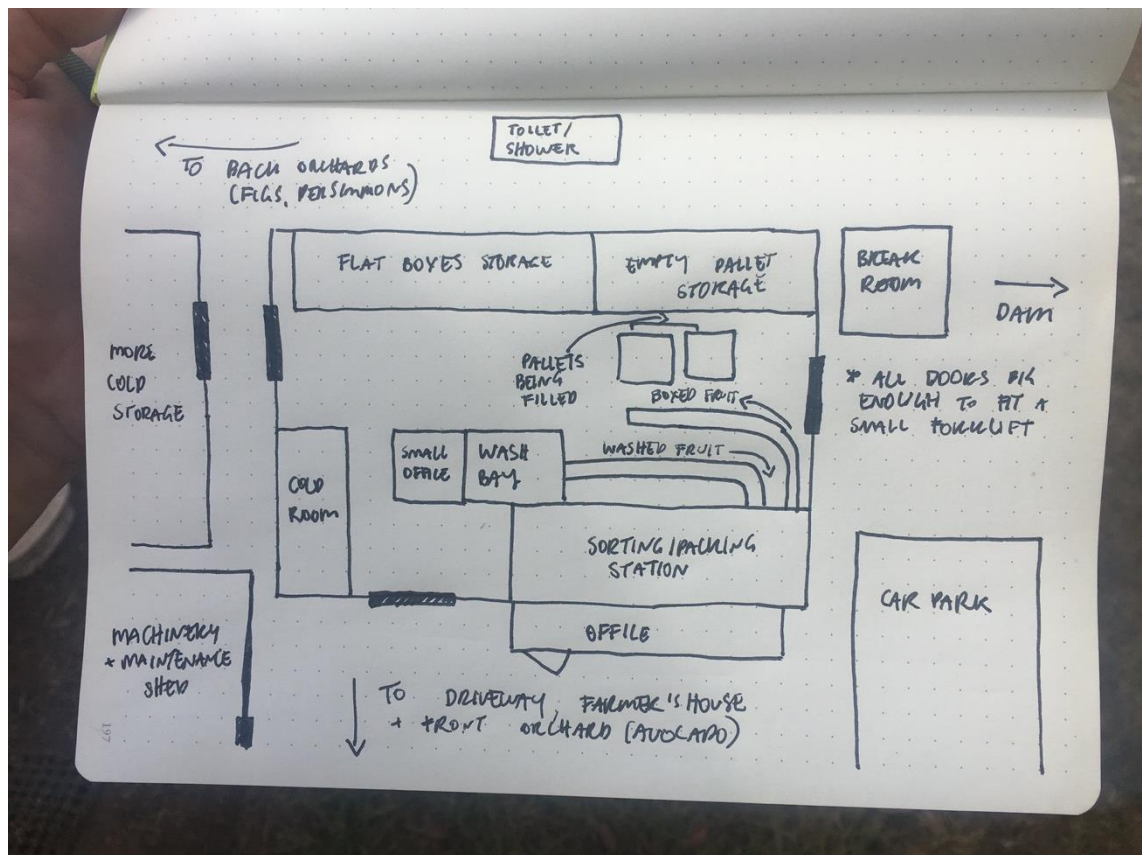 TOILET/
SHOWER
TO BACK ORCHARDS
(FIGS, PERSIMMONS)
FLAT BOXES STORAGE
EMPTY PALLET
STORAGE
BREAK
ROOM
DAM
MORE
COLD
STORAGE
PALLETS
BEING
FILLED
BOXED FRUIT
* ALL DOORS BIG
ENOUGH TO FIT A
SMALL FORKLIFT
SMALL
OFFICE
WASH
BAY
WASHED FRUIT
COLD
ROOM
SORTING/PACKING
STATION
CAR PARK
OFFICE
MACHINERY
+ MAINTENANCE
SHED
TO DRIVEWAY, FARMER'S HOUSE
+ FRONT ORCHARD (AVOCADO)
197